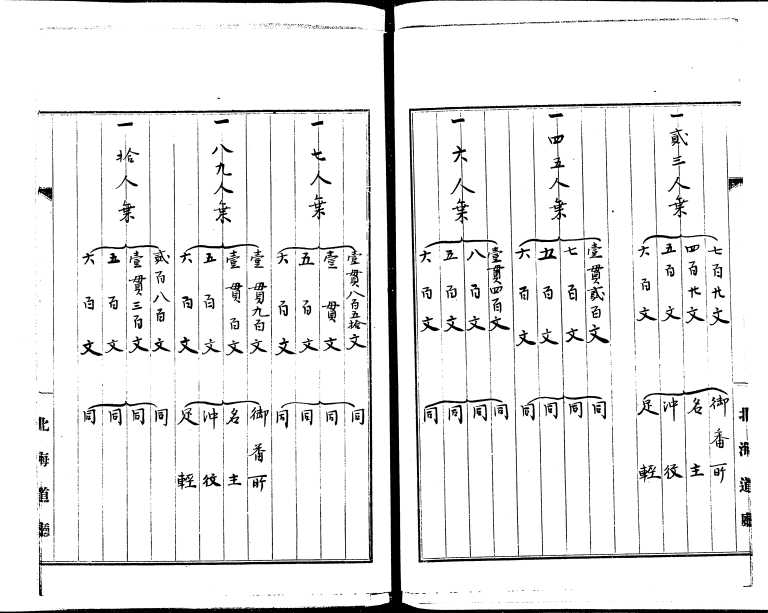 北海道廳
一貳三人乗
七百廿文 御番所
四百廿文 名主
五百文 沖役
六百文 足輕
一四五人乗
壹貫貳百文 同
七百文 同
五百文 同
六百文 同
一六人乗
壹貫四百文 同
八百文 同
五百文 同
六百文 同
一七人乗
壹貫八百五拾文 同
壹貫文 同
五百文 同
六百文 同
一八九人乗
壹貫九百文 御番所
壹貫百文 名主
五百文 沖役
六百文 足輕
一拾人乗
貳百八百文 同
壹貫三百文 同
五百文 同
六百文 同
北海道廳